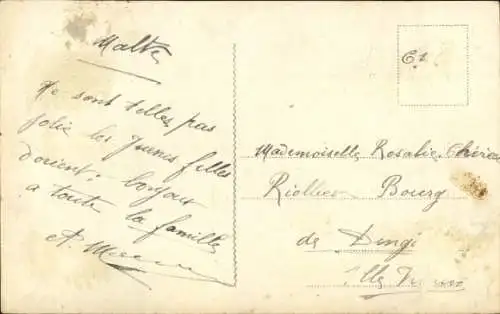 Malte
Ne sont telles pas
jolie les Jeunes filles
dorient. bonjour
a toute la famille
A.
C1
Mademoiselle Rosalie
Bourg
de Dingé
Ille